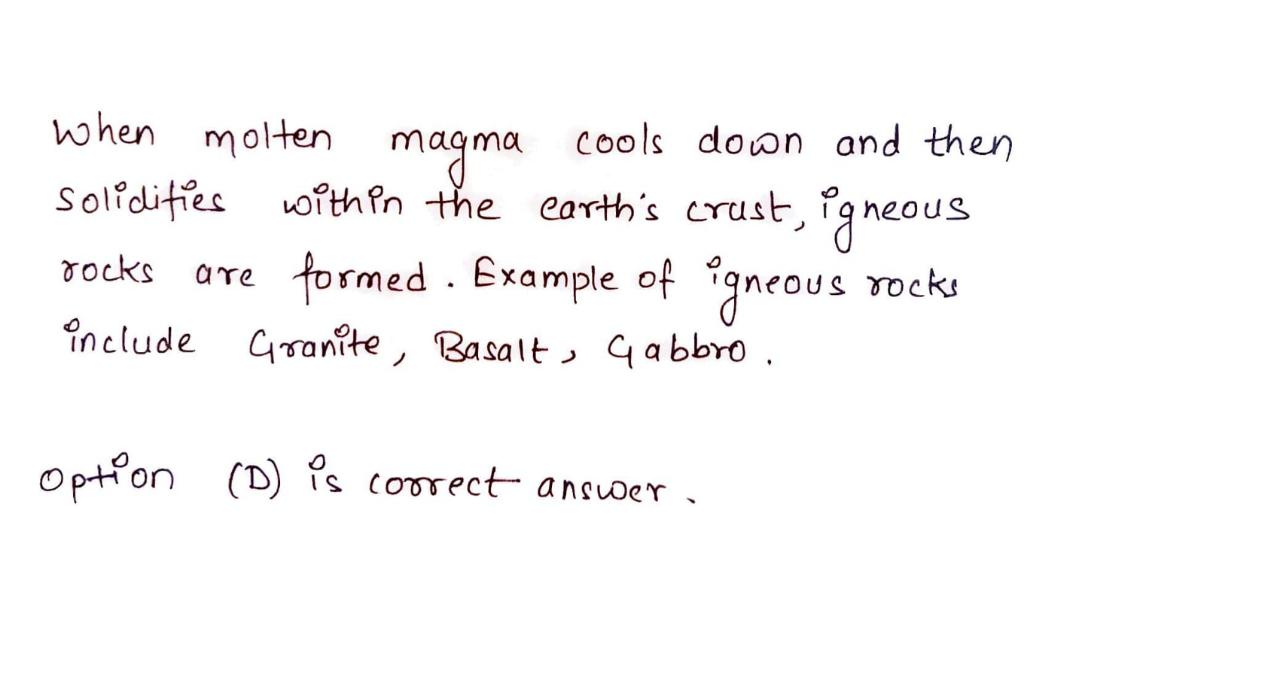 When molten magma cools down and then
solidifies within the earth's crust, igneous
rocks are formed. Example of igneous rocks
include Granite, Basalt, Gabbro.
Option (D) is correct answer.